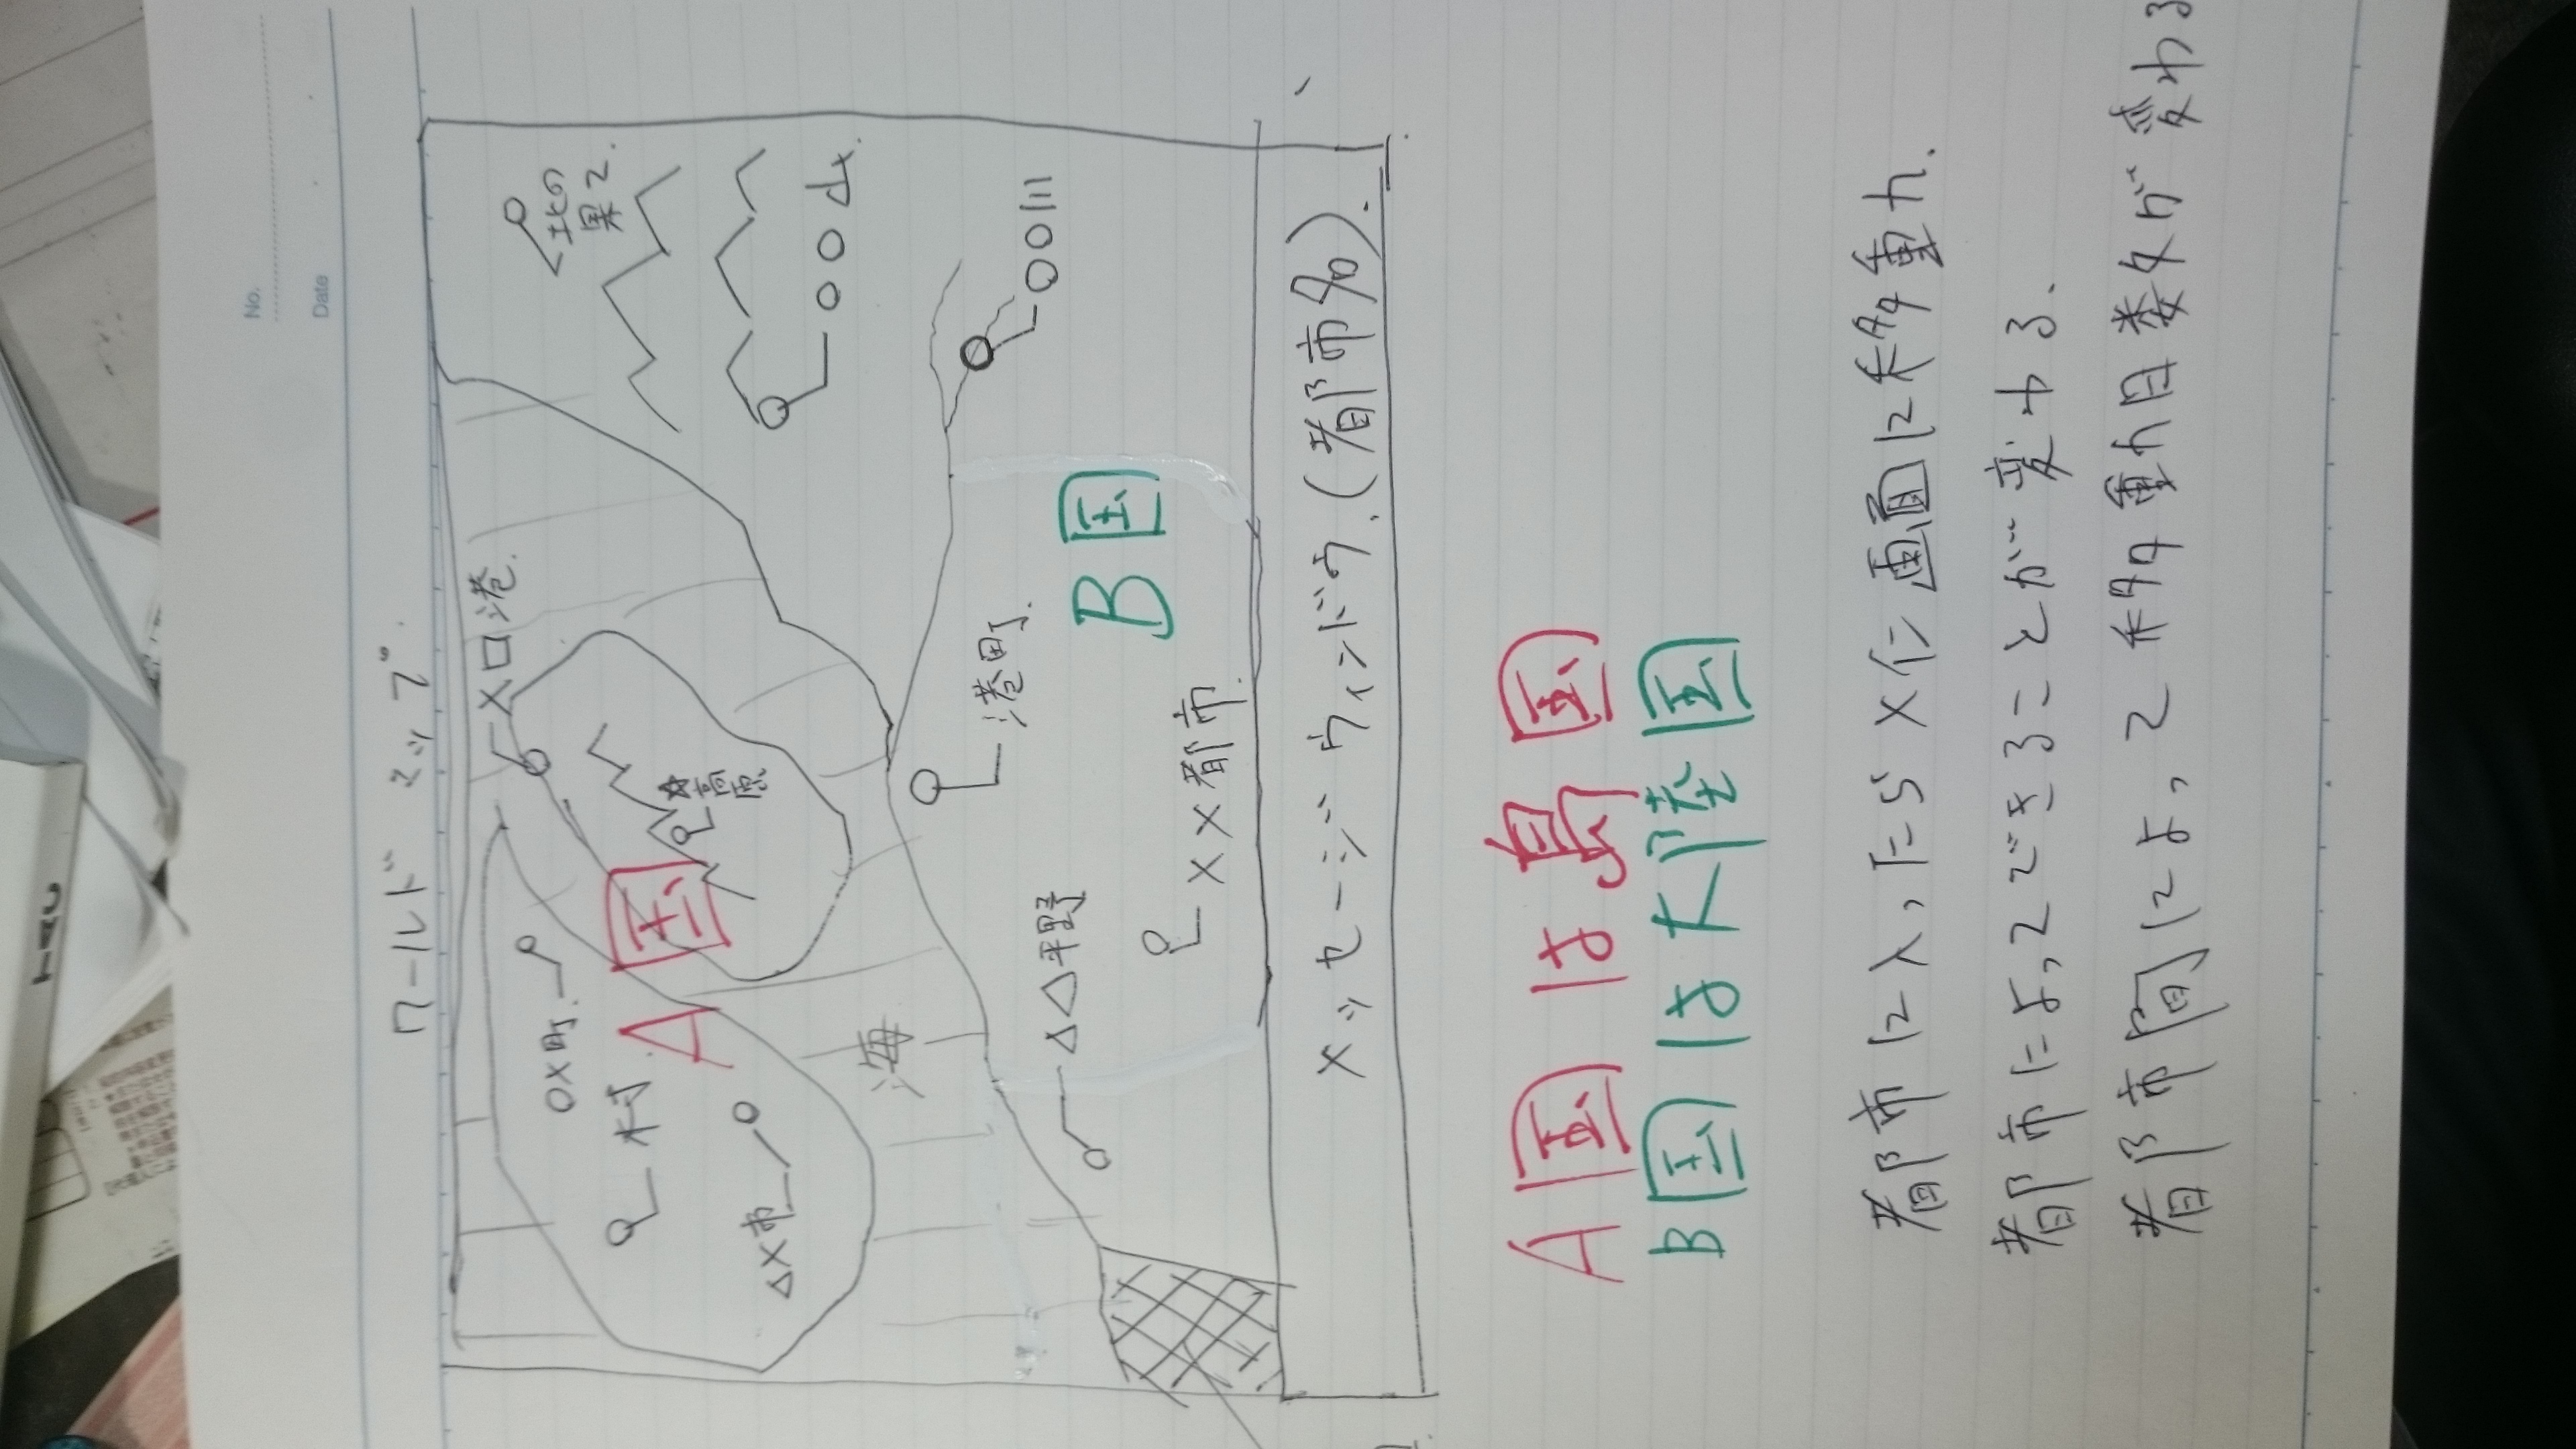 TAC
No.
Date
ワールド マップ
X口港
〇X町
北の
果て
村
A国
☆高原
△X市
〇〇山
海
港町
〇〇川
△△平野
B国
XX都市
メッセージウィンドウ(都市名)
A国は島国
B国は大陸国
都市に入ったらメイン画面に移動
都市によってできることが変わる
都市間によって移動日数が変わる